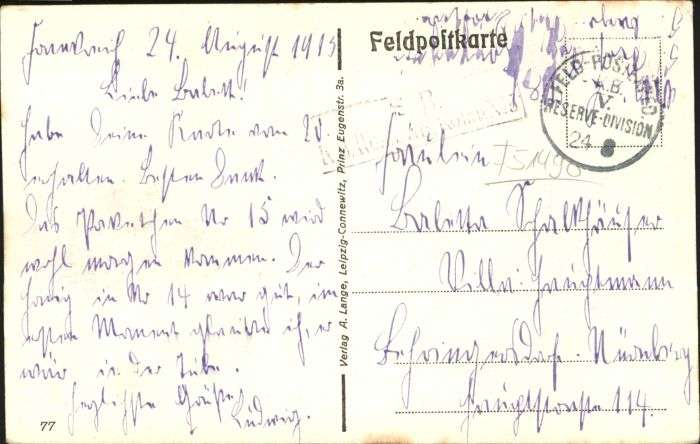 Frankreich 24. August 1915
Liebe Babett!
Habe Deine Karte vom 20.
erhalten. Besten Dank.
Das Paketchen Nr 15 wird
wohl morgen kommen. Der
Honig in Nr 14 war gut, im
ersten Moment glaubte ich, er
wär in der Tube.
Herzlichste Grüße
Ludwig.
77
Verlag A. Lange, Leipzig-Connewitz, Prinz Eugenstr. 3a.
Feldpostkarte
FELD-POST
K.B.
V.
RESERVE-DIVISION
24
Fräulein
75149
Babetta Schalkhäuser
Villa: Hauptmann
Behringersdorf. Nürnberg
Hauptstrasse 114.